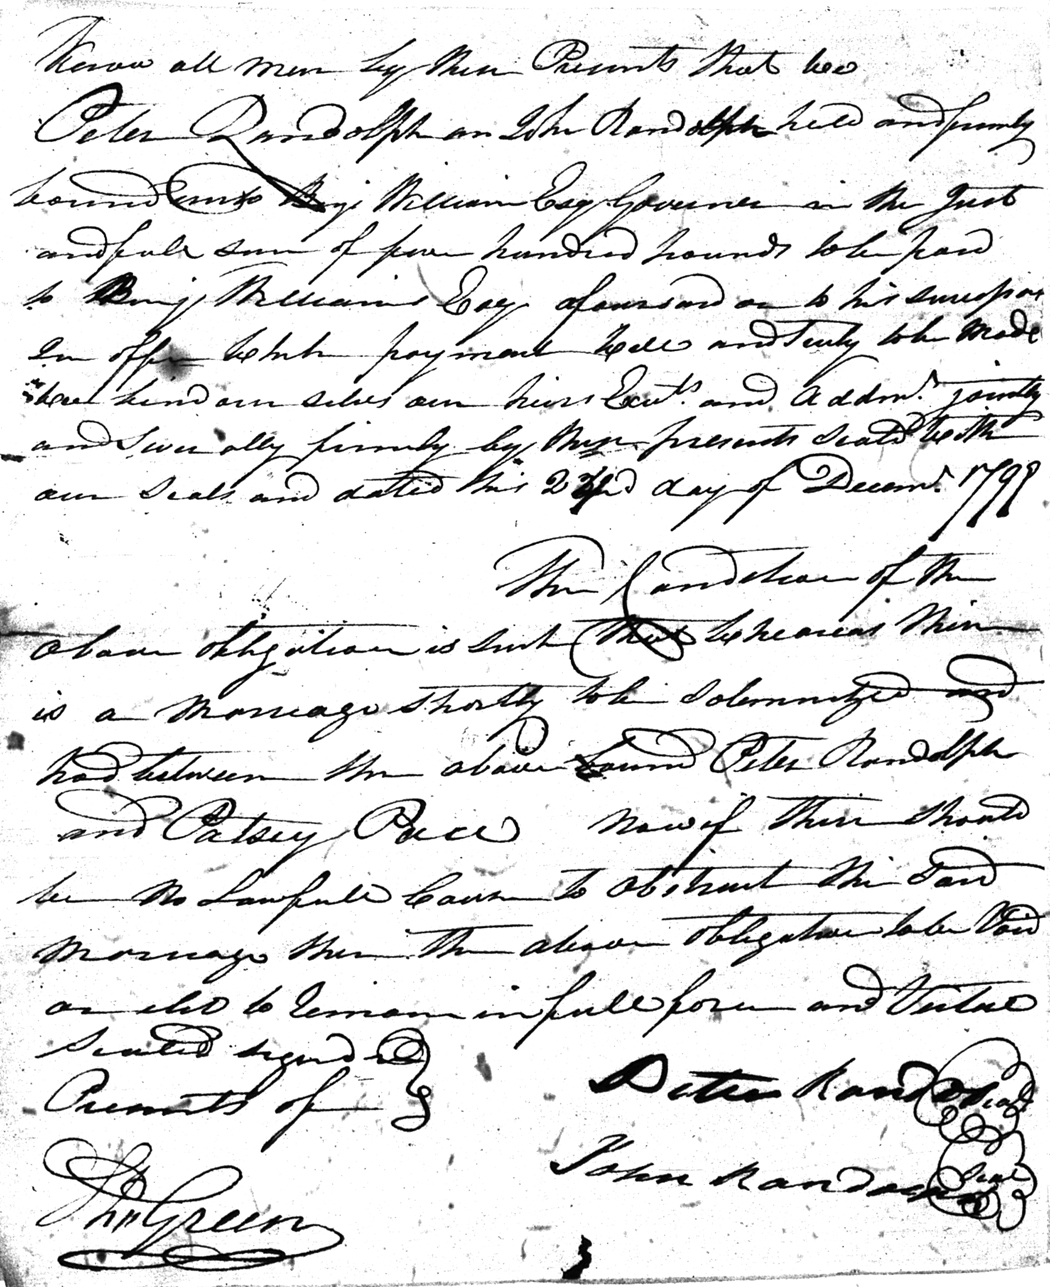 Know all men by these Presents that we
Peter Randolph an John Randolph held and firmly
bound unto Benj Williams Esq Governer in the Just
and full sum of five hundred pounds to be paid
to Benj Williams Esq afoursaid or to his
In office which payment well and truly to be Made
we bind our selves our heirs Exts. and Addms. jointly
and Severally firmly by these presents Seald with
our Seals and dated this day of Decem. 1798
The Condition of the
above obligation is such that whereas there
is a marriage shortly to be solemnized and
had between the above bound Peter Randolph
and Patsey Pace now if there should
be no Lawfull Cause to obstruct the Said
Marriage then the above obligation to be Void
or else to Remain in full force and Virtue
Sealed signed
Presents of
Peter Randol Seal
Green
John Randolph Seal